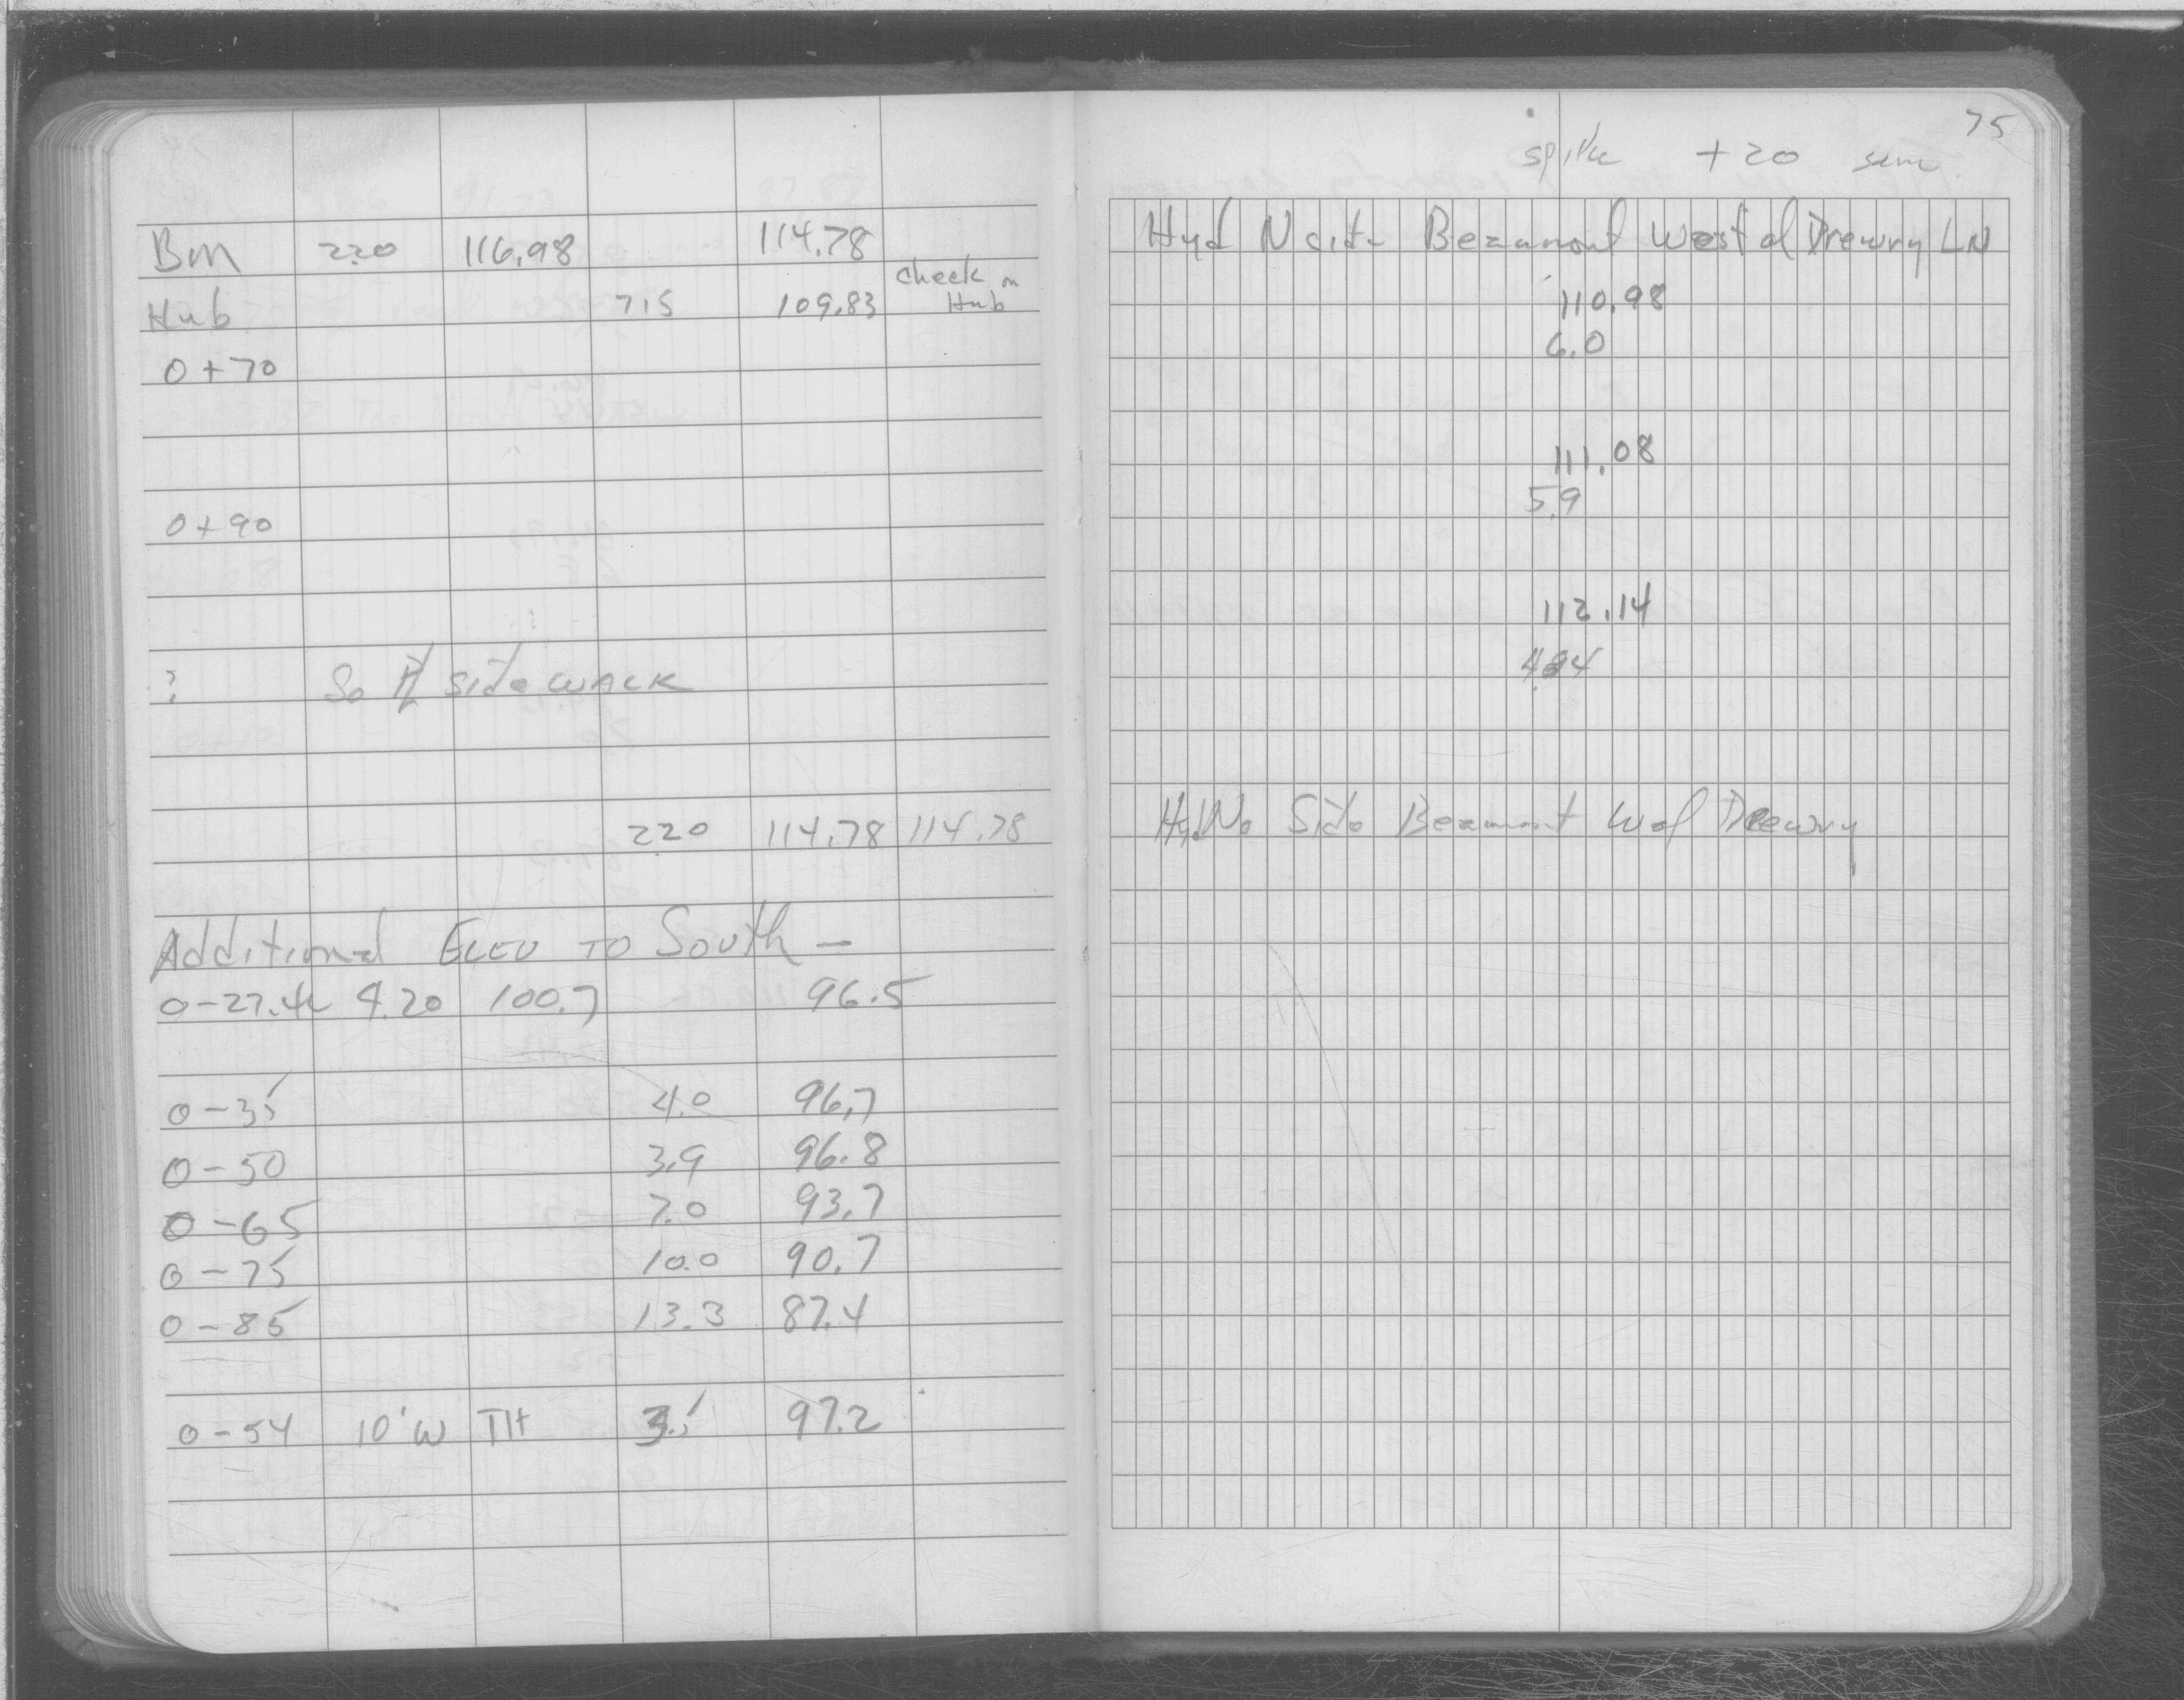 Bm 2.20 116.98 114.78
Hub 7.15 109.83 check on Hub
0+70
0+90
So ⅊ sidewalk
2.20 114.78 114.78
Additional Elev to South —
0-27.4 4.20 100.7 96.5
0-35 4.0 96.7
0-50 3.9 96.8
0-65 7.0 93.7
0-75 10.0 90.7
0-85 13.3 87.4
0-54 10'W TH 3.5 97.2
75
spike +20
Hyd N side Beaumont West of Drewry LN
110.98
6.0
111.08
5.9
112.14
Hyd No Side Beaumont W of Drewry